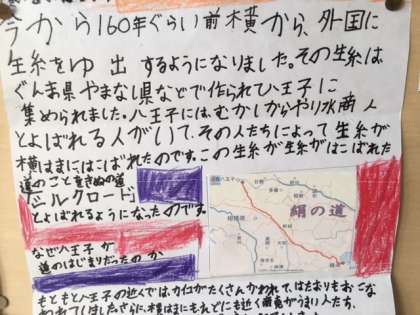 今から160年ぐらい前横から、外国に
生糸をゆ出するようになりました。その生糸は
ぐんま県やまなし県などで作られて八王子に
集められました。八王子には、むかしからやり水商人
とよばれる人がいて、その人たちによって生糸が
横はまにはこばれたのです。この生糸が生糸がはこばれた
道のことをきぬの道
「シルクロード」
とよばれるようになったのです。
絹の道
なぜ八王子が
道のはじまりだったのか
もともと八王子の近くでは、カイコがたくさんかわれて、はたおりもおこな
われてしました。さらに、横はまにも